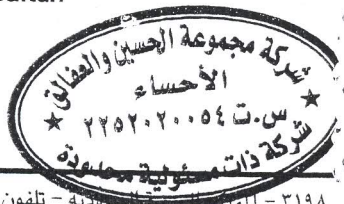 شركة مجموعة الحسين والعفالق
الأحساء
س.ت ٢٢٥٢٠٢٠٠٥٤
شركة ذات مسئولية محدودة
٣١٩٨ – تلفون